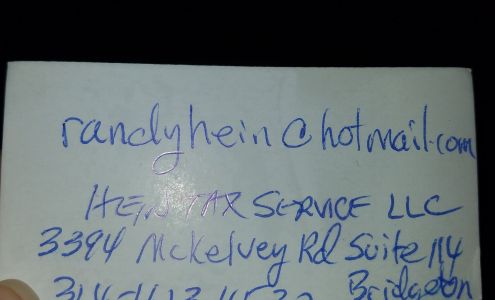 randyhein@hotmail.com
HEIN TAX SERVICE LLC
3394 McKelvey Rd Suite 114
Bridgeton